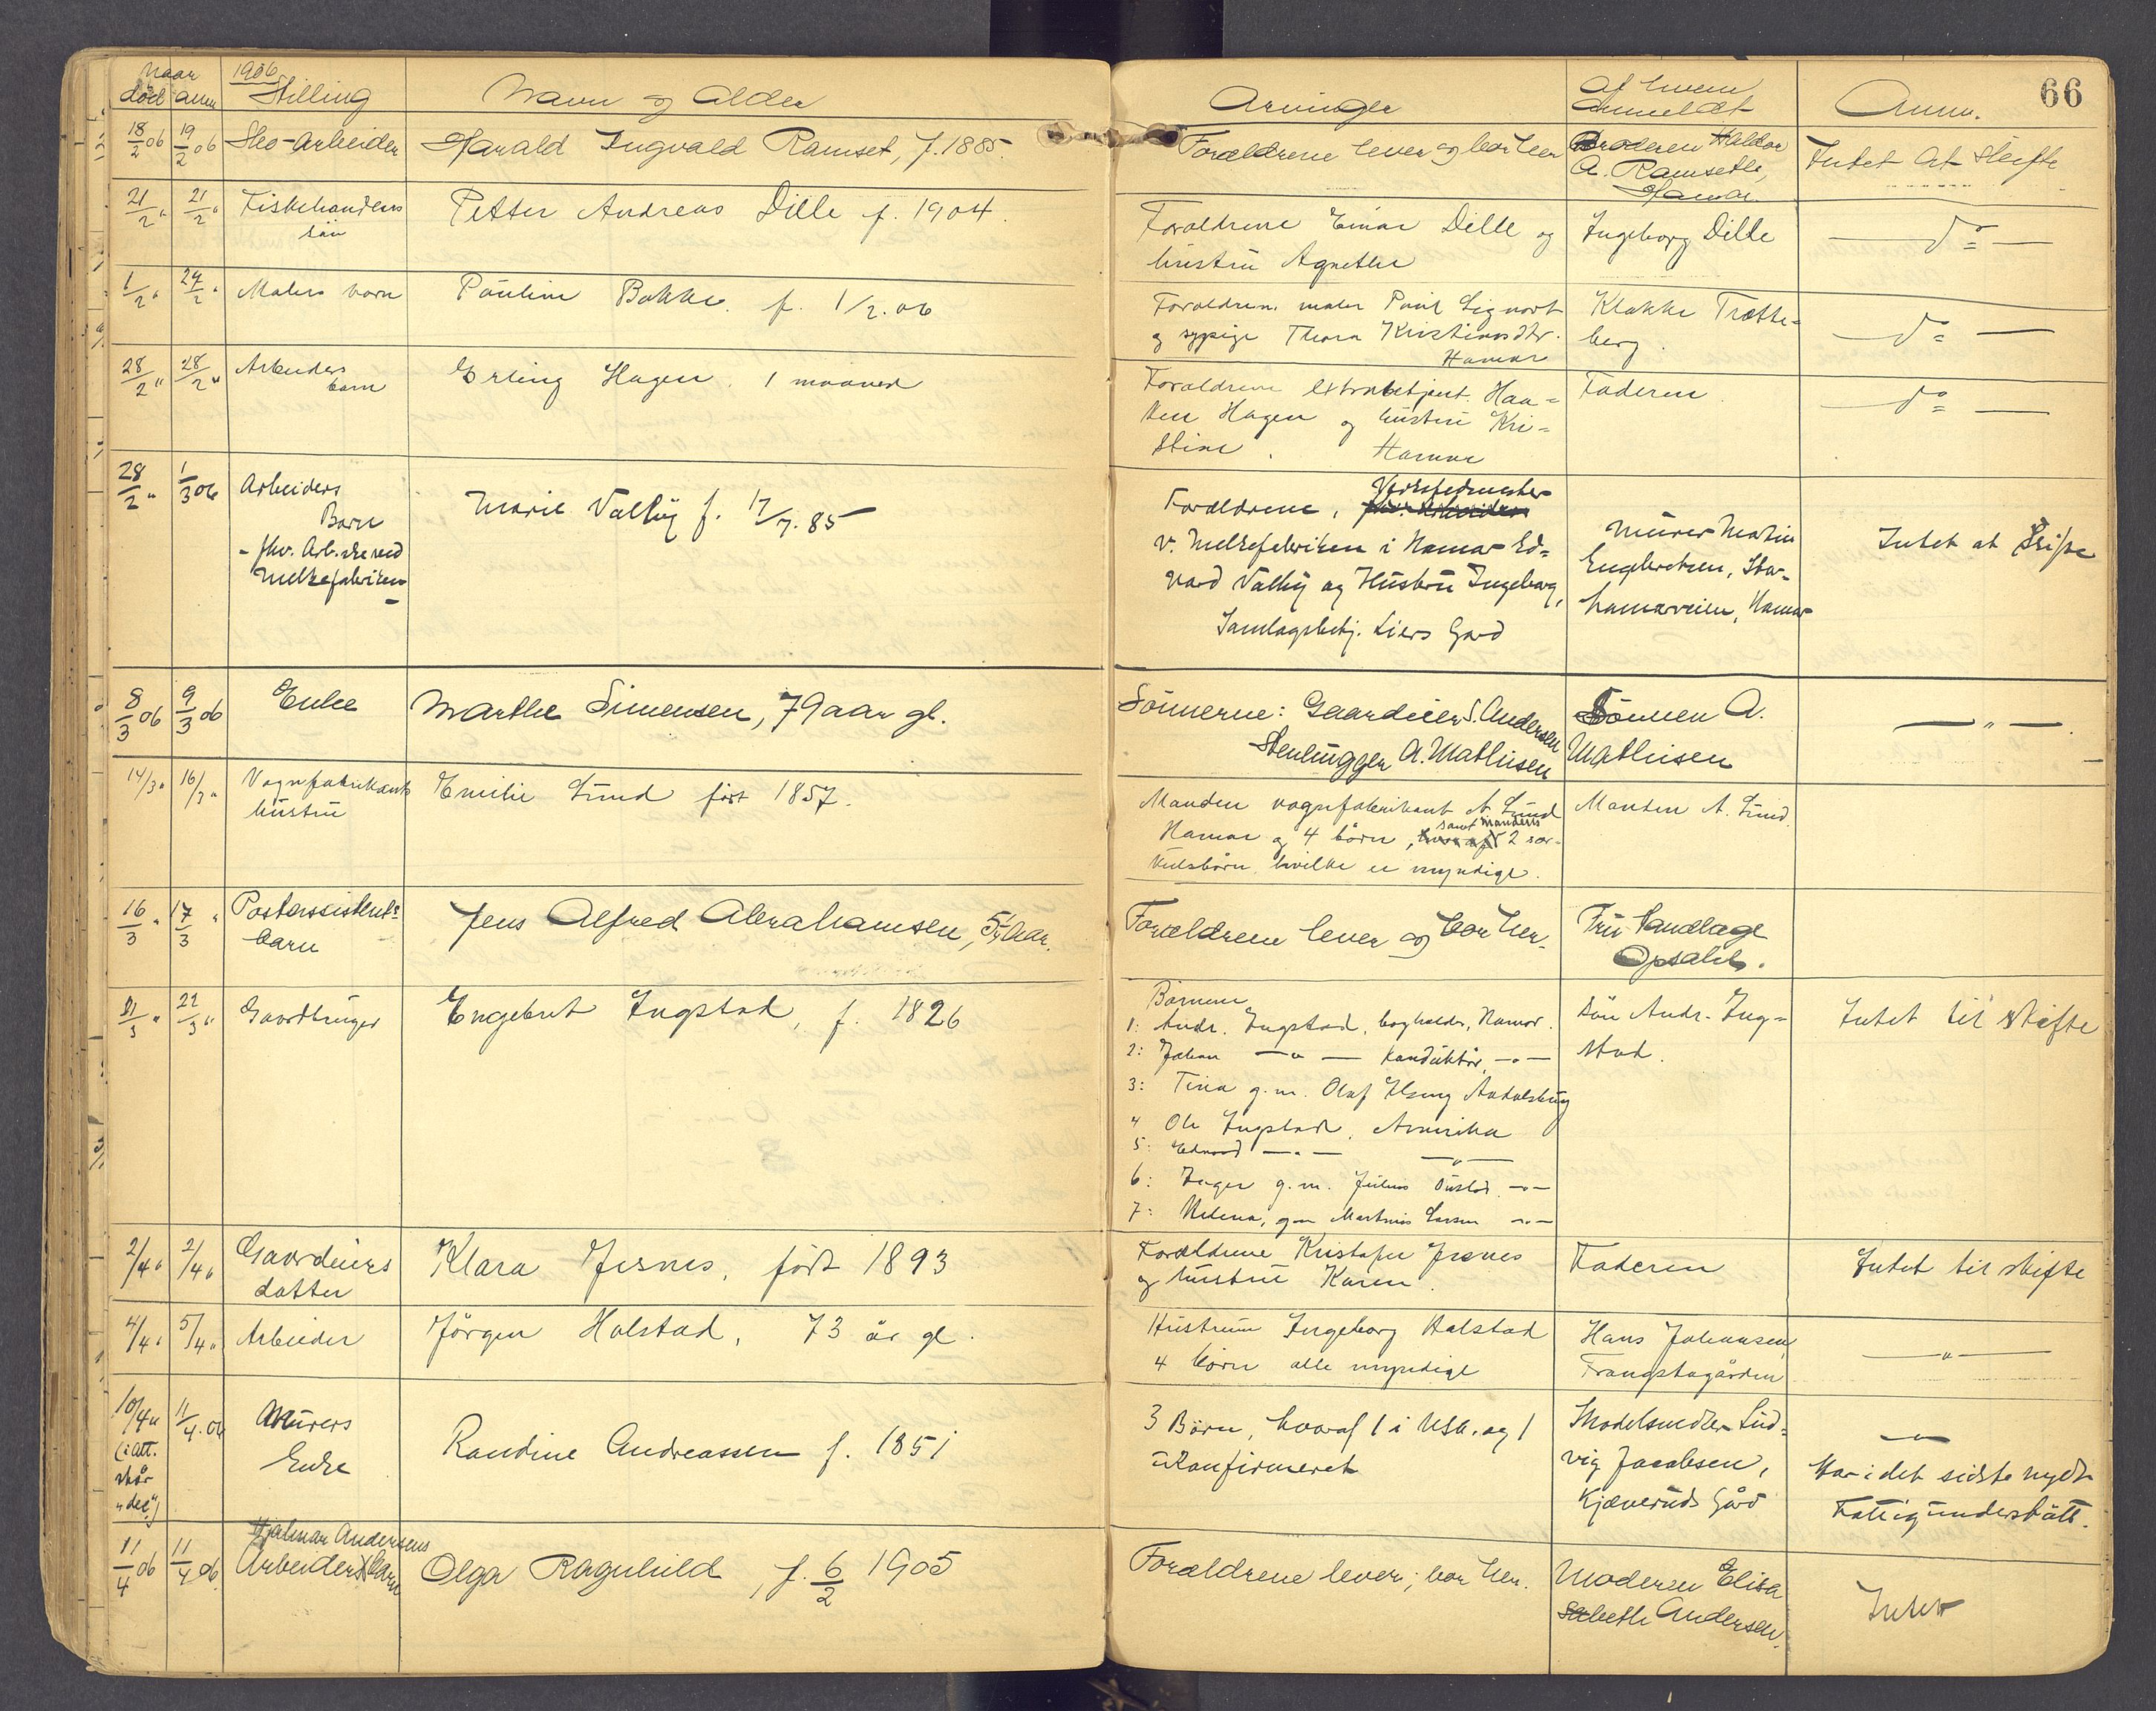 Naar 1906
död anm Stilling Navn og Alder Arvinger Af hvem anmeldt Anm. 66
18/2 06 19/2 06 Sko-Arbeider Harald Ingvald Ramset, f. 1885. Forældrene lever og bor her Broderen Haldor Intet at skifte
A. Ramseth,
Hamar.
21/2 " 21/2 " Fiskehandlers Petter Andreas Dille f. 1904. Forældrene Einar Dille og Ingeborg Dille — do —
søn hustru Agnethe
1/2 " 24/2 " Malers barn Pauline Bakke. f. 1/2.06 Forældren. maler Paul Sigvart Klokker Trætte= — do —
og sypige Thora Kristiansdtr. berg.
Hamar
28/2 " 28/2 " Arbeiders Erling Hagen. 1 maaned Forældrene extrabetjent. Haa= Faderen — do —
barn ken Hagen og hustru Kri=
stine. Hamar
28/2 " 1/3 06 Arbeiders Marie Valby f. 17/7.85 Forældrene, Verksfedmester
Barn v. Melkefabriken i Hamar Ed= Murer Martin Intet at Skifte
- fhv. Arb.ske ved vard Valby og Hustru Ingeborg, Engebretsen, Stor-
Melkefabriken - Samlagsbetj. Liers Gård hamarveien, Hamar
8/3 06 9/3 06 Enke Marthe Simensen, 79 aar gl. Sönnerne: Gaardeier S. Andersen Sönnen A. — " —
Stenhugger A. Mathisen Mathisen
14/3 " 16/3 " Vognfabrikants Emilie Lund født 1857. Manden vognfabrikant A. Lund Manden A. Lund.
hustru Hamar og 4 børn, samt mandens 2 sær-
kulsbørn hvilke er myndige.
16/3 " 17/3 " Postassistents Jens Alfred Abrahamsen, 5 1/2 Aar. Forældrene lever og bor her. Fru Sandlage
barn Opsahl.
21/3 " 22/3 " Gaardbruger Engebret Ingstad, f. 1826 Børnene Søn Andr. Ing= Intet til skifte
1: Andr. Ingstad, bogholder, Hamar. stad.
2: Johan — " — konduktør — " —
3: Tina g.m. Olaf
4 Ole Ingstad, Amerika
5: Edvard — " — — " —
6: Inger g.m. Julius — " —
7: Helena, gm Martinius Larsen — " —
2/4 " 2/4 " Gaardeiers Klara Jesnes, født 1893 Forældrene Kristofer Jesnes Faderen Intet til skifte
datter og hustru Karen.
4/4 " 5/4 " Arbeider Jörgen Halstad, 73 år gl. Hustruen Ingeborg Halstad Hans Johansen, — " —
4 børn alle myndige Frangstagården
10/4 " 11/4.06 Murers Randine Andreassen f. 1851 3 Børn, hvoraf 1 i USA. og 1 Skodelsmedlem Lud- — " —
(i att. Enke ukonfirmeret vig Jacobsen, Har i det sidste nydt
står Kjæveruds Gård Fattigunderstött.
"dec")
11/4 06 11/4 06 Hjalmar Andersens
Arbeiders barn Olga Ragnhild, f. 6/2 1905 Forældrene lever; bor her. Moderen Elisa Intet
sabeth Andersen.